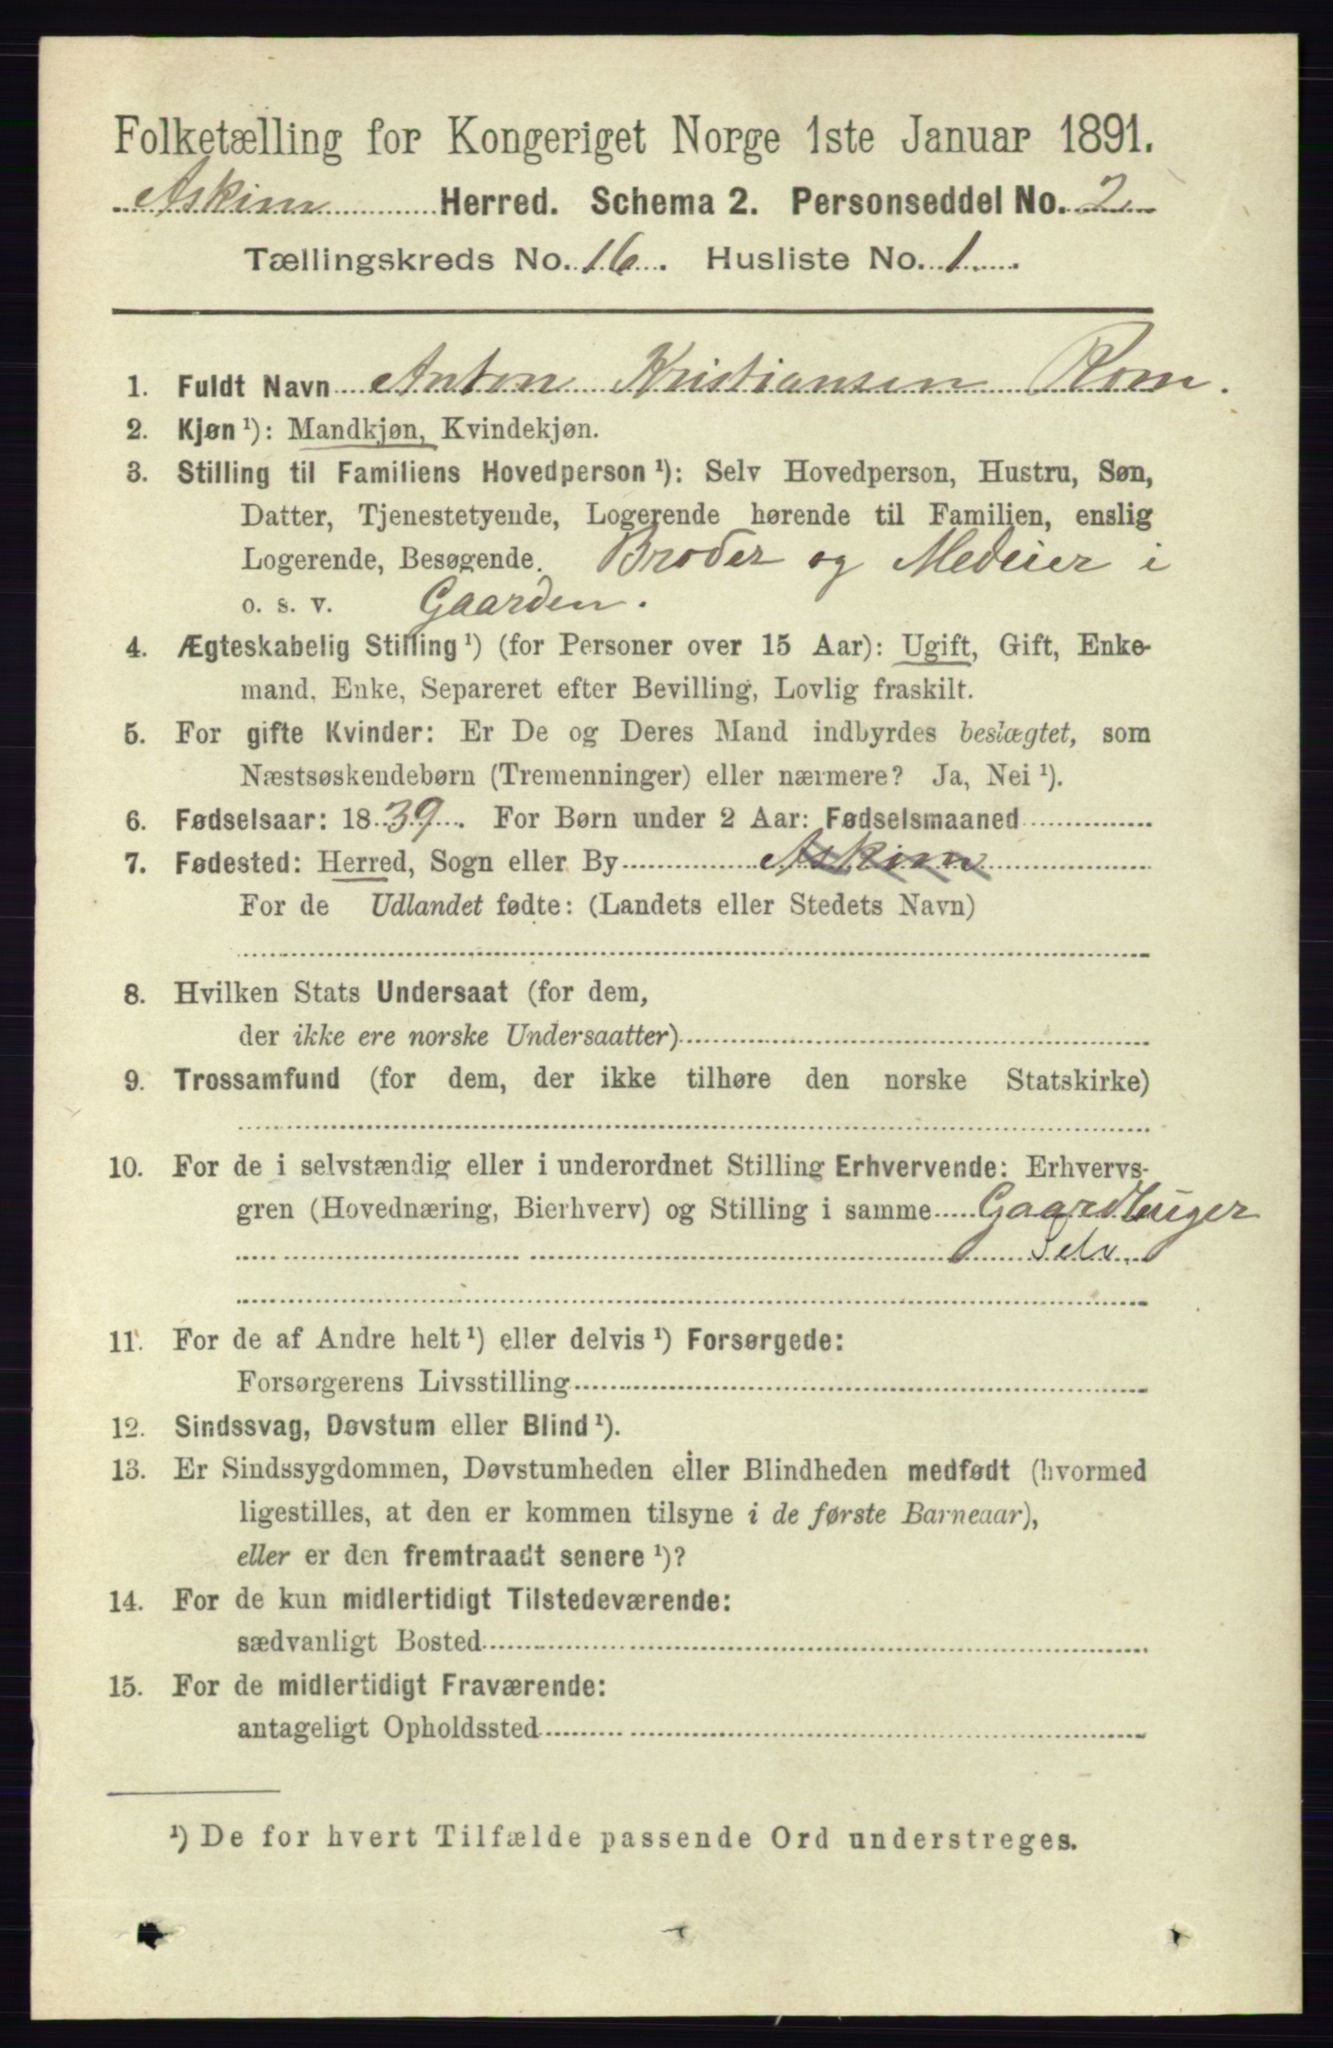 Folketælling for Kongeriget Norge 1ste Januar 1891.
Askim Herred. Schema 2. Personseddel No. 2
Tællingskreds No. 16. Husliste No. 1.
1. Fuldt Navn Anton Kristiansen Rom.
2. Kjøn ¹): Mandkjøn, Kvindekjøn.
3. Stilling til Familiens Hovedperson ¹): Selv Hovedperson, Hustru, Søn,
Datter, Tjenestetyende, Logerende hørende til Familien, enslig
Logerende, Besøgende. Broder og Medeier i
o. s. v. Gaarden.
4. Ægteskabelig Stilling ¹) (for Personer over 15 Aar): Ugift, Gift, Enke-
mand, Enke, Separeret efter Bevilling, Lovlig fraskilt.
5. For gifte Kvinder: Er De og Deres Mand indbyrdes beslægtet, som
Næstsøskendebørn (Tremenninger) eller nærmere? Ja, Nei ¹).
6. Fødselsaar: 1839. For Børn under 2 Aar: Fødselsmaaned
7. Fødested: Herred, Sogn eller By Askim
For de Udlandet fødte: (Landets eller Stedets Navn)
8. Hvilken Stats Undersaat (for dem,
der ikke ere norske Undersaatter)
9. Trossamfund (for dem, der ikke tilhøre den norske Statskirke)
10. For de i selvstændig eller i underordnet Stilling Erhvervende: Erhvervs-
gren (Hovednæring, Bierhverv) og Stilling i samme Gaardbruger
Selv.
11. For de af Andre helt ¹) eller delvis ¹) Forsørgede:
Forsørgerens Livsstilling
12. Sindssvag, Døvstum eller Blind ¹).
13. Er Sindssygdommen, Døvstumheden eller Blindheden medfødt (hvormed
ligestilles, at den er kommen tilsyne i de første Barneaar),
eller er den fremtraadt senere ¹)?
14. For de kun midlertidigt Tilstedeværende:
sædvanligt Bosted
15. For de midlertidigt Fraværende:
antageligt Opholdssted
¹) De for hvert Tilfælde passende Ord understreges.